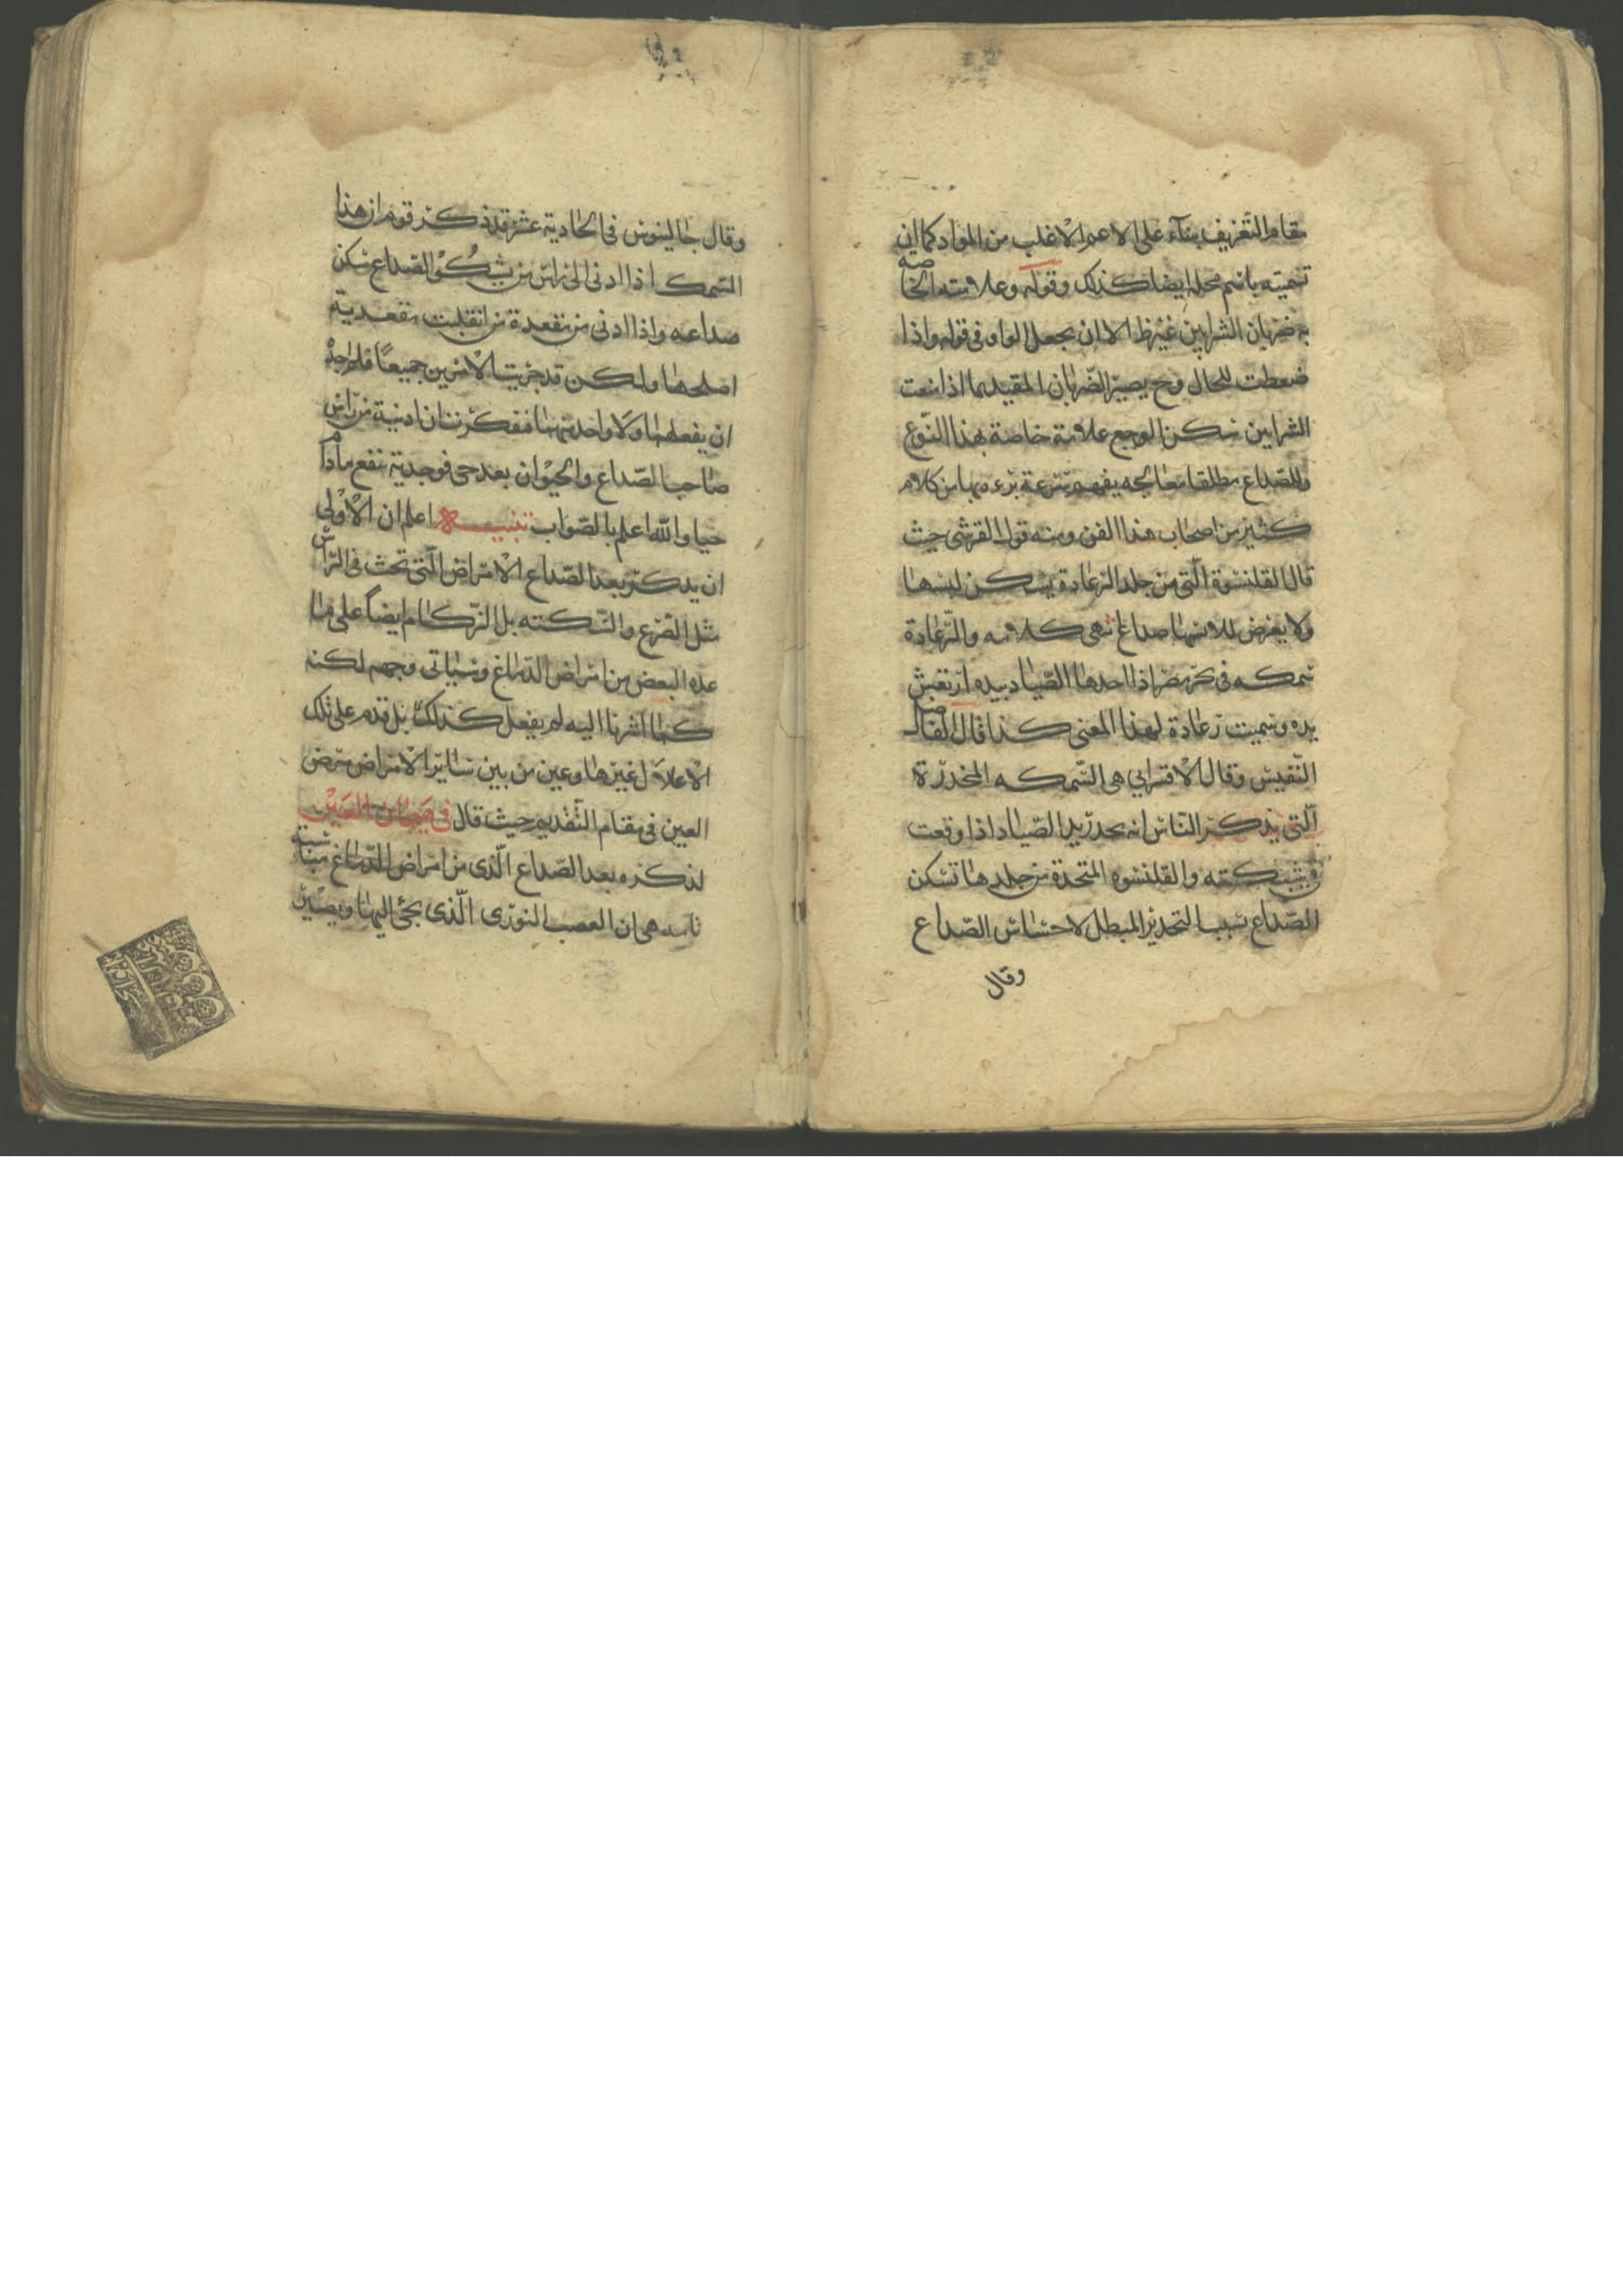 مقام التعريف بناء على الاعم الاغلب من المواد كما ان
تسميته باسم محله ايضا كذلك وقوله وعلامته الخاصة
به ضربان الشرايين غير ظ الا ان يجعل الواو فى قوله واذا
ضغطت للحال وح يصير الضربان المقيد بما اذا منعت
الشرايين سكن الوجع علامة خاصة بهذا النوع
وللصداع مطلقا معالجه يفهم سرعة برءه بها من كلام
كثير من اصحاب هذا الفن ومنه قول القرشى حيث
قال القلنسوة الّتى من جلد الرعادة يسكن لبسها
ولا يعرض للابسها صداع انتهى كلامه والرّعادة
سمكه فى بحر مصر اذا اخذها الصّياد بيده ارتعش
يده وسميت رعادة لهذا المعنى كذا قال الفاضل
النّفيس وقال الاقسرايى هى السّمكه المخدرة
الّتى يذكر النّاس انه يخدر يد الصّياد اذا وقعت
فى شبكته والقلنسوه المتخذة من جلدها تسكن
الصّداع بسبب التخدير المبطل لاحساس الصّداع
وقال
وقال جالينوس فى الحادية عشر قد ذكر قوم ان هذا
السّمك اذا ادنى الى راس من يشكو الصّداع سكن
صداعه واذا ادنى من مقعدة من انقلبت مقعديه
اصلحها ولكن قد جربت الامرين جميعًا فلم اجد
ان يفعلهما ولا واحد منهما ففكرت ان ادنيه من راس
صاحب الصّداع والحيوان بعد حى فوجدته نفع مادام
حيا والله اعلم بالصّواب تنبيه اعلم ان الاولى
ان يذكر بعد الصّداع الامراض الّتى تحدث فى الرّاس
مثل الصّرع والسّكته بل الزّكام ايضاً على ما
عده البعض من امراض الدّماغ وسياتى وجهه لكنه
كما اشرنا اليه لم يفعل كذلك بل قدم على تلك
الاعلال غيرها وعين من بين سائر الامراض مرض
العين فى مقام التّقديم حيث قال فى
لذكره بعد الصّداع الّذى من امراض الدّماغ مناسبة
تامه هى ان العصب النورى الّذى يجئ اليها ويصير